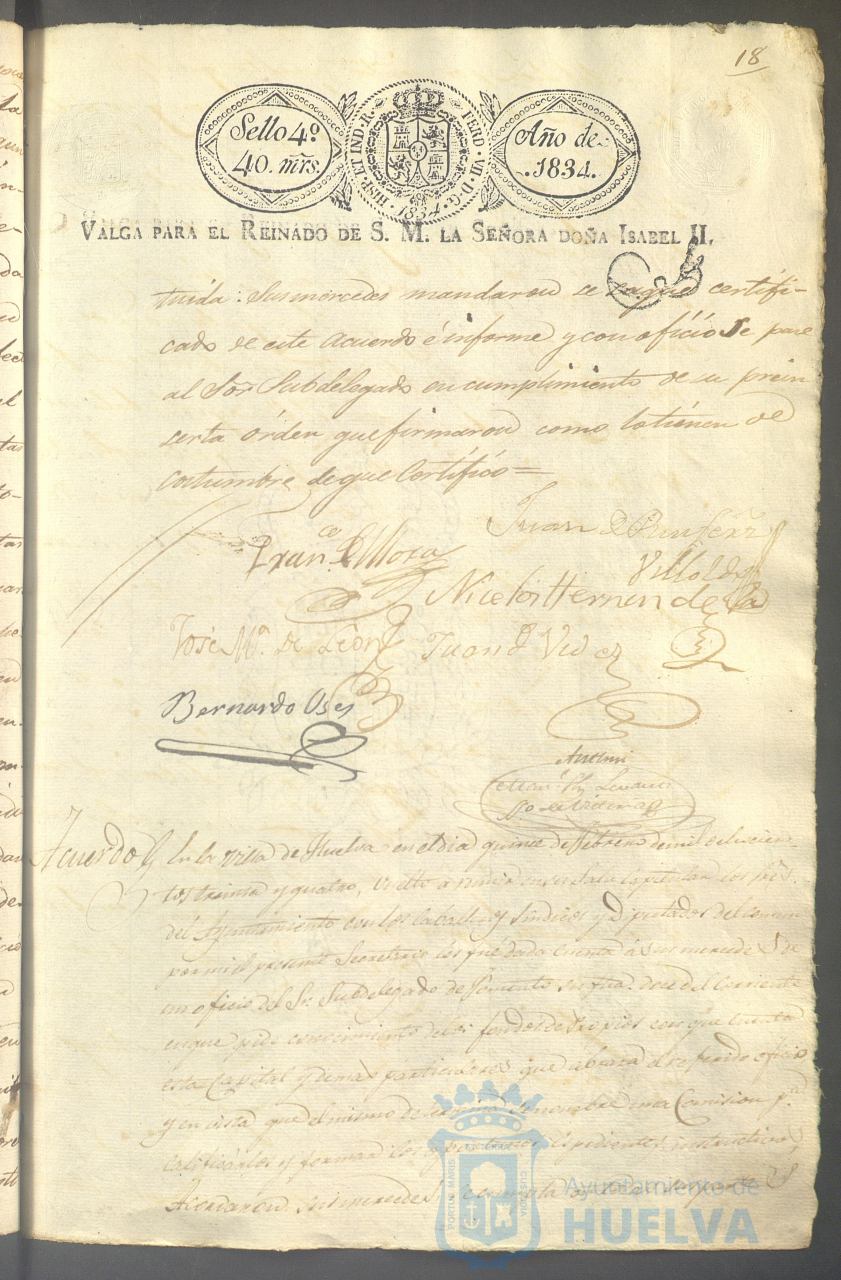 18
Sello 4º
40. mrs.
HISP. ET IND. R. FERD. VII. D. G.
1834
Año de
1834.
VALGA PARA EL REINADO DE S. M. LA SEÑORA DOÑA ISABEL II.
tuida: Sus mercedes mandaron se saque certifi-
cado de este Acuerdo é informe y con oficio se pase
al Sor. Subdelegado en cumplimiento de su prein
serta órden que firmaron como lo tienen de
costumbre de que Certifico =
Juan
Franco. de Mora
Nicolás Hernandez
José Mª. de León
Juan Vides
Bernardo
Antemi
Acuerdo En la Villa de Huelva en el dia quince de Febrero de mil ochocien-
tos treinta y quatro, en su Sala Capitular los Sres.
del Ayuntamiento con los Caballeros Síndicos y Diputados del comun
por mi el presente Secretario les fue dada cuenta á sus mercedes de
un oficio del Sr. Subdelegado de Fomento su fha. doce del corriente
en que pide conocimiento de los fondos de Propios con que cuenta
esta Capital y demas particulares que abraza el referido oficio
y en vista que el mismo se nombre una Comision pa.
calificarlos y formar los espedientes instructivos,
Acordaron sus mercedes
PORTUS MARIS
CUSTODIA
Ayuntamiento de
HUELVA